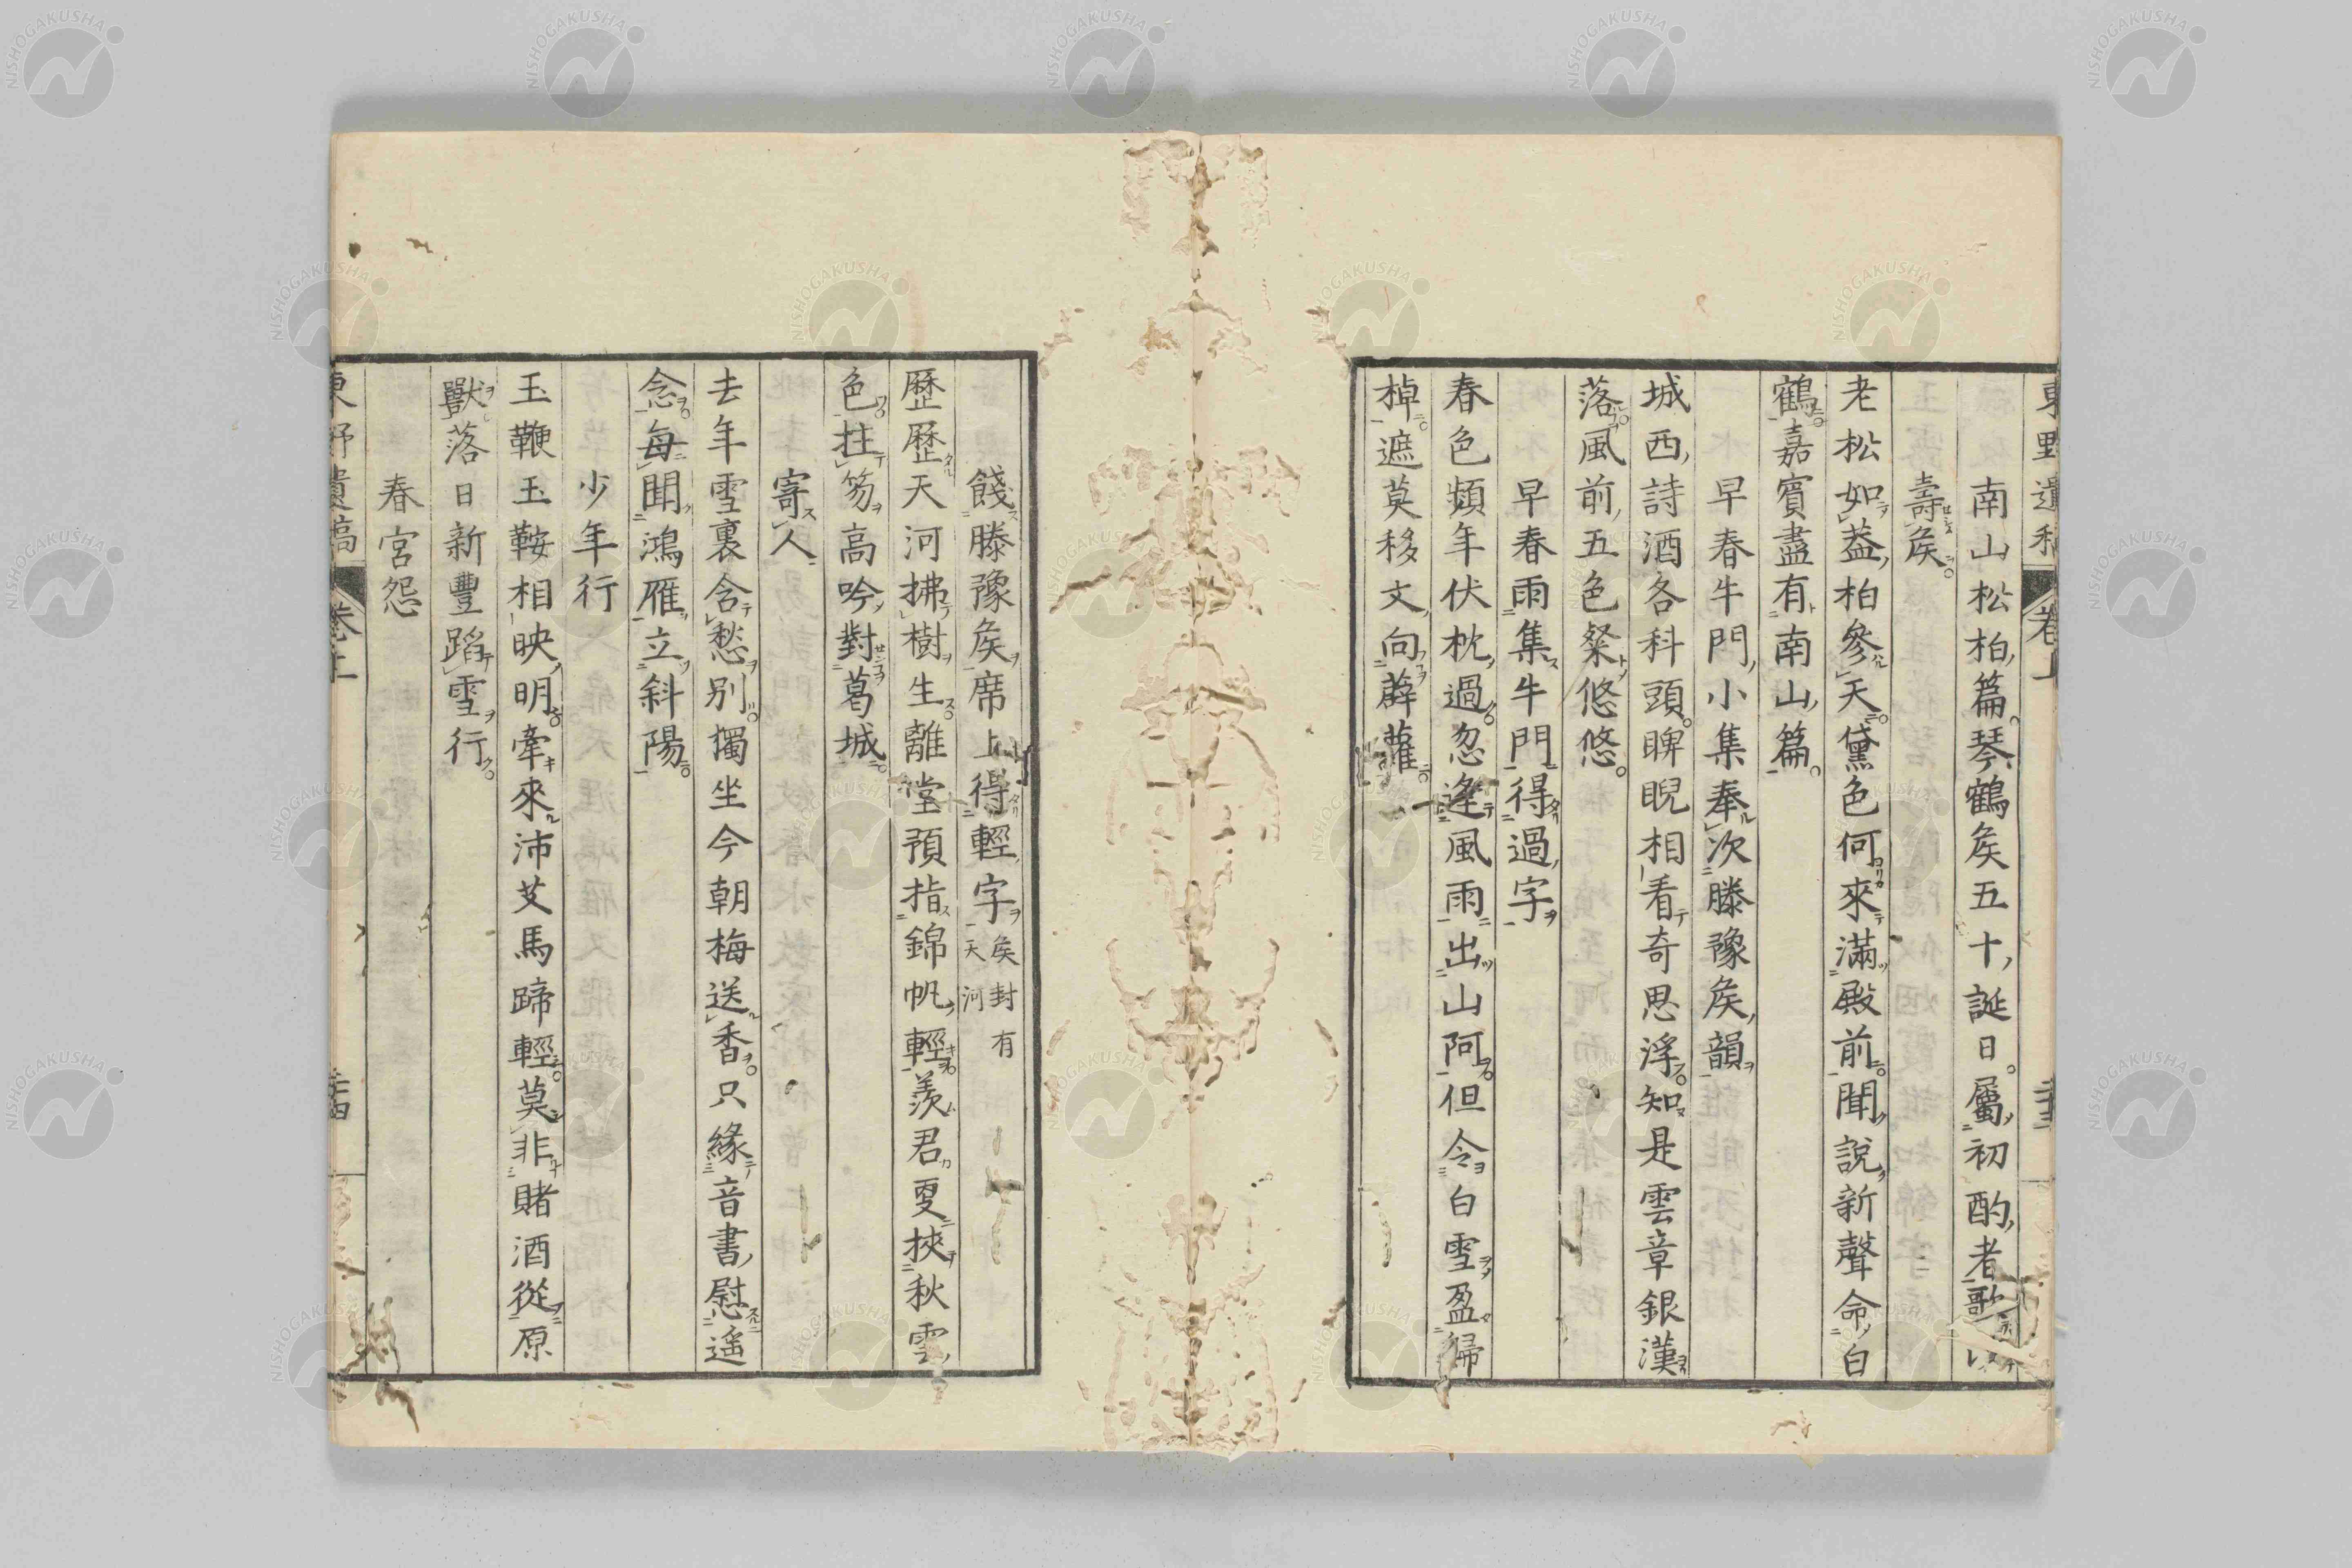 南山松柏篇琴鶴矦五十誕日屬初酌者歌
壽矦
老松如葢柏參天黛色何來滿殿前聞說新聲命白
鶴嘉賓盡有南山篇
早春牛門小集奉次滕豫矦韻
城西詩酒各科頭睥睨相看奇思浮知是雲章銀漢
落風前五色粲悠悠
早春雨集牛門得過字
春色頻年伏枕過忽逢風雨出山阿但令白雪盈歸
棹遮莫移文向薜蘿
餞滕豫矦席上得輕字矦封有天河
歷歷天河拂樹生離堂預指錦帆輕羨君更挾秋雲
色拄笏高吟對葛城
寄人
去年雪裏含愁別獨坐今朝梅送香只緣音書慰遥
念每聞鴻雁立斜陽
少年行
玉鞭玉鞍相映明牽來沛艾馬蹄輕莫非賭酒從原
獸落日新豐蹈雪行
春宮怨
東野遺稿
卷上